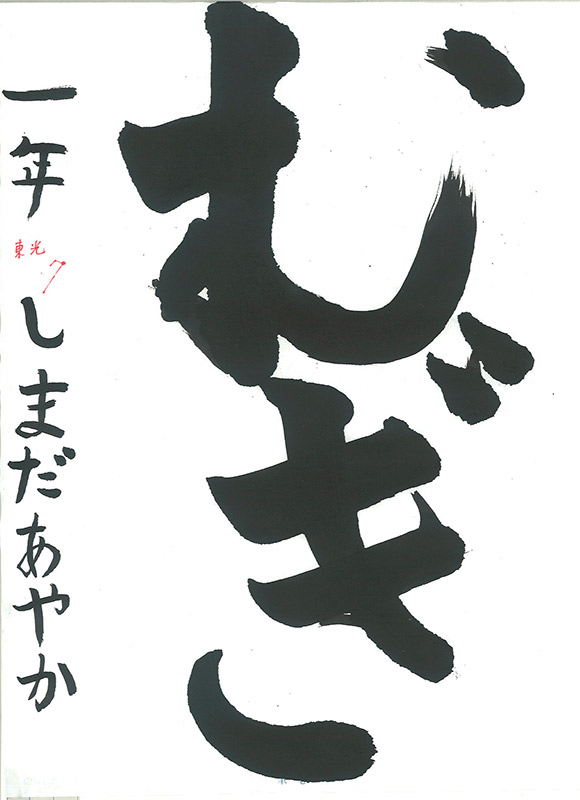 むぎ
一年 しまだあやか
東光